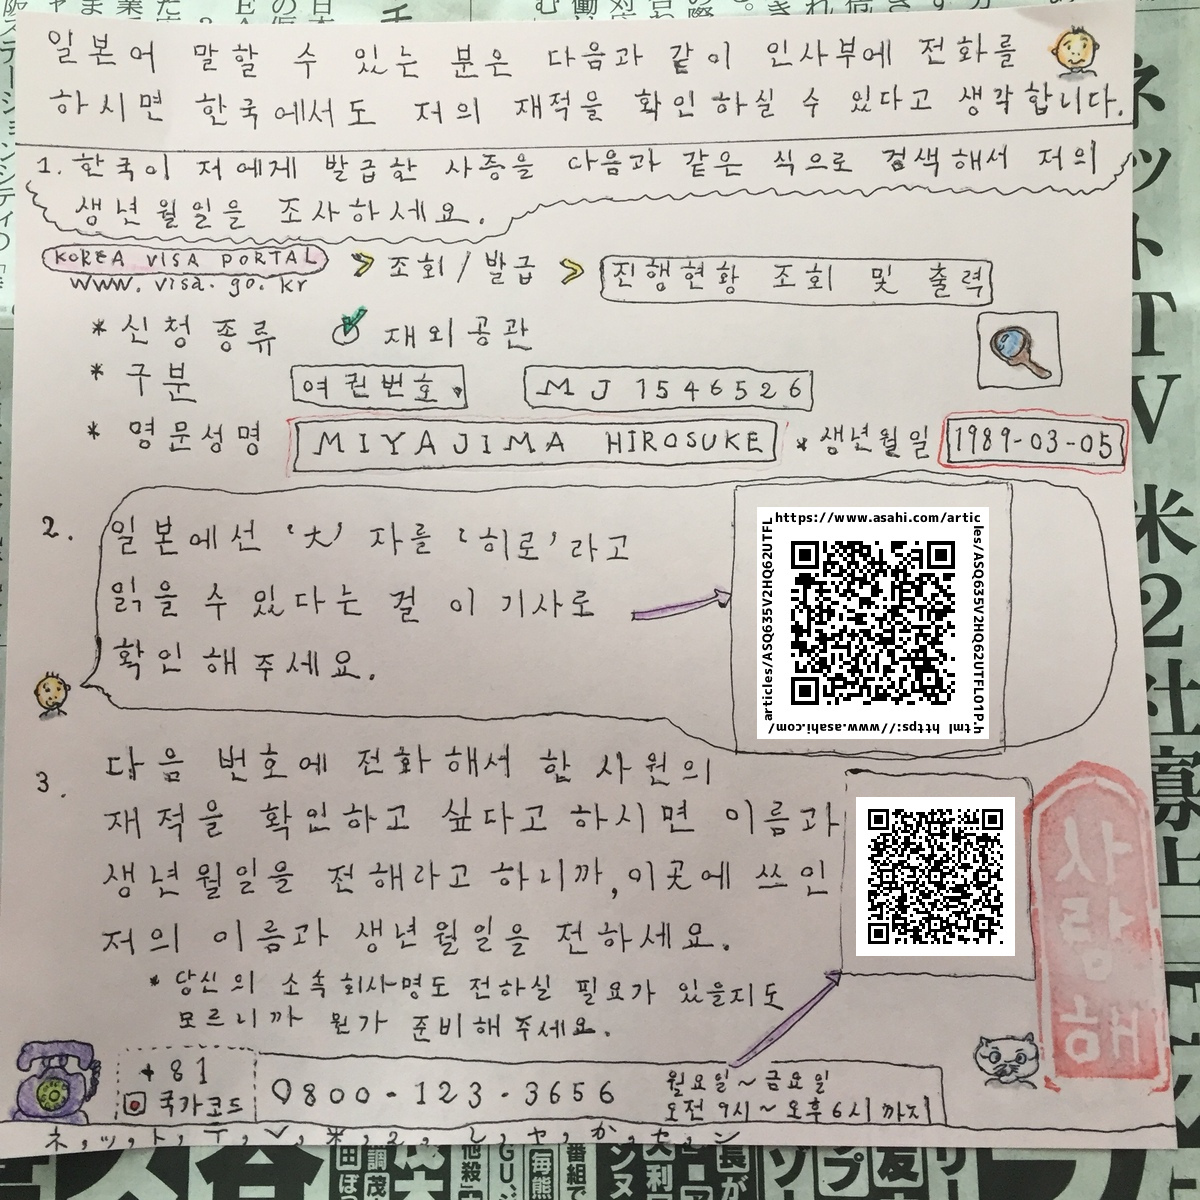 일본어 말할 수 있는 분은 다음과 같이 인사부에 전화를
하시면 한국에서도 저의 재적을 확인하실 수 있다고 생각합니다.
1. 한국이 저에게 발급한 사증을 다음과 같은 식으로 검색해서 저의
생년월일을 조사하세요.
KOREA VISA PORTAL > 조회/발급 > 진행현황 조회 및 출력
www.visa.go.kr
* 신청 종류 재외공관
* 구분 여권번호 MJ1546526
* 영문성명 MIYAJIMA HIROSUKE * 생년월일 1989-03-05
2. 일본에선 '大' 자를 '히로'라고
읽을 수 있다는 걸 이 기사로
확인해주세요.
https://www.asahi.com/articles/ASQ635V2HQ62UTFL01P.html
https://www.asahi.com/articles/ASQ635V2HQ62UTFL
3. 다음 번호에 전화해서 한 사원의
재적을 확인하고 싶다고 하시면 이름과
생년월일을 전해라고 하니까, 이곳에 쓰인
저의 이름과 생년월일을 전하세요.
* 당신의 소속 회사명도 전하실 필요가 있을지도
모르니까 뭔가 준비해주세요.
사랑해
+81
국가코드
0800-123-3656
월요일~금요일
오전 9시~오후 6시 까지
ネットTV 米2社寡占